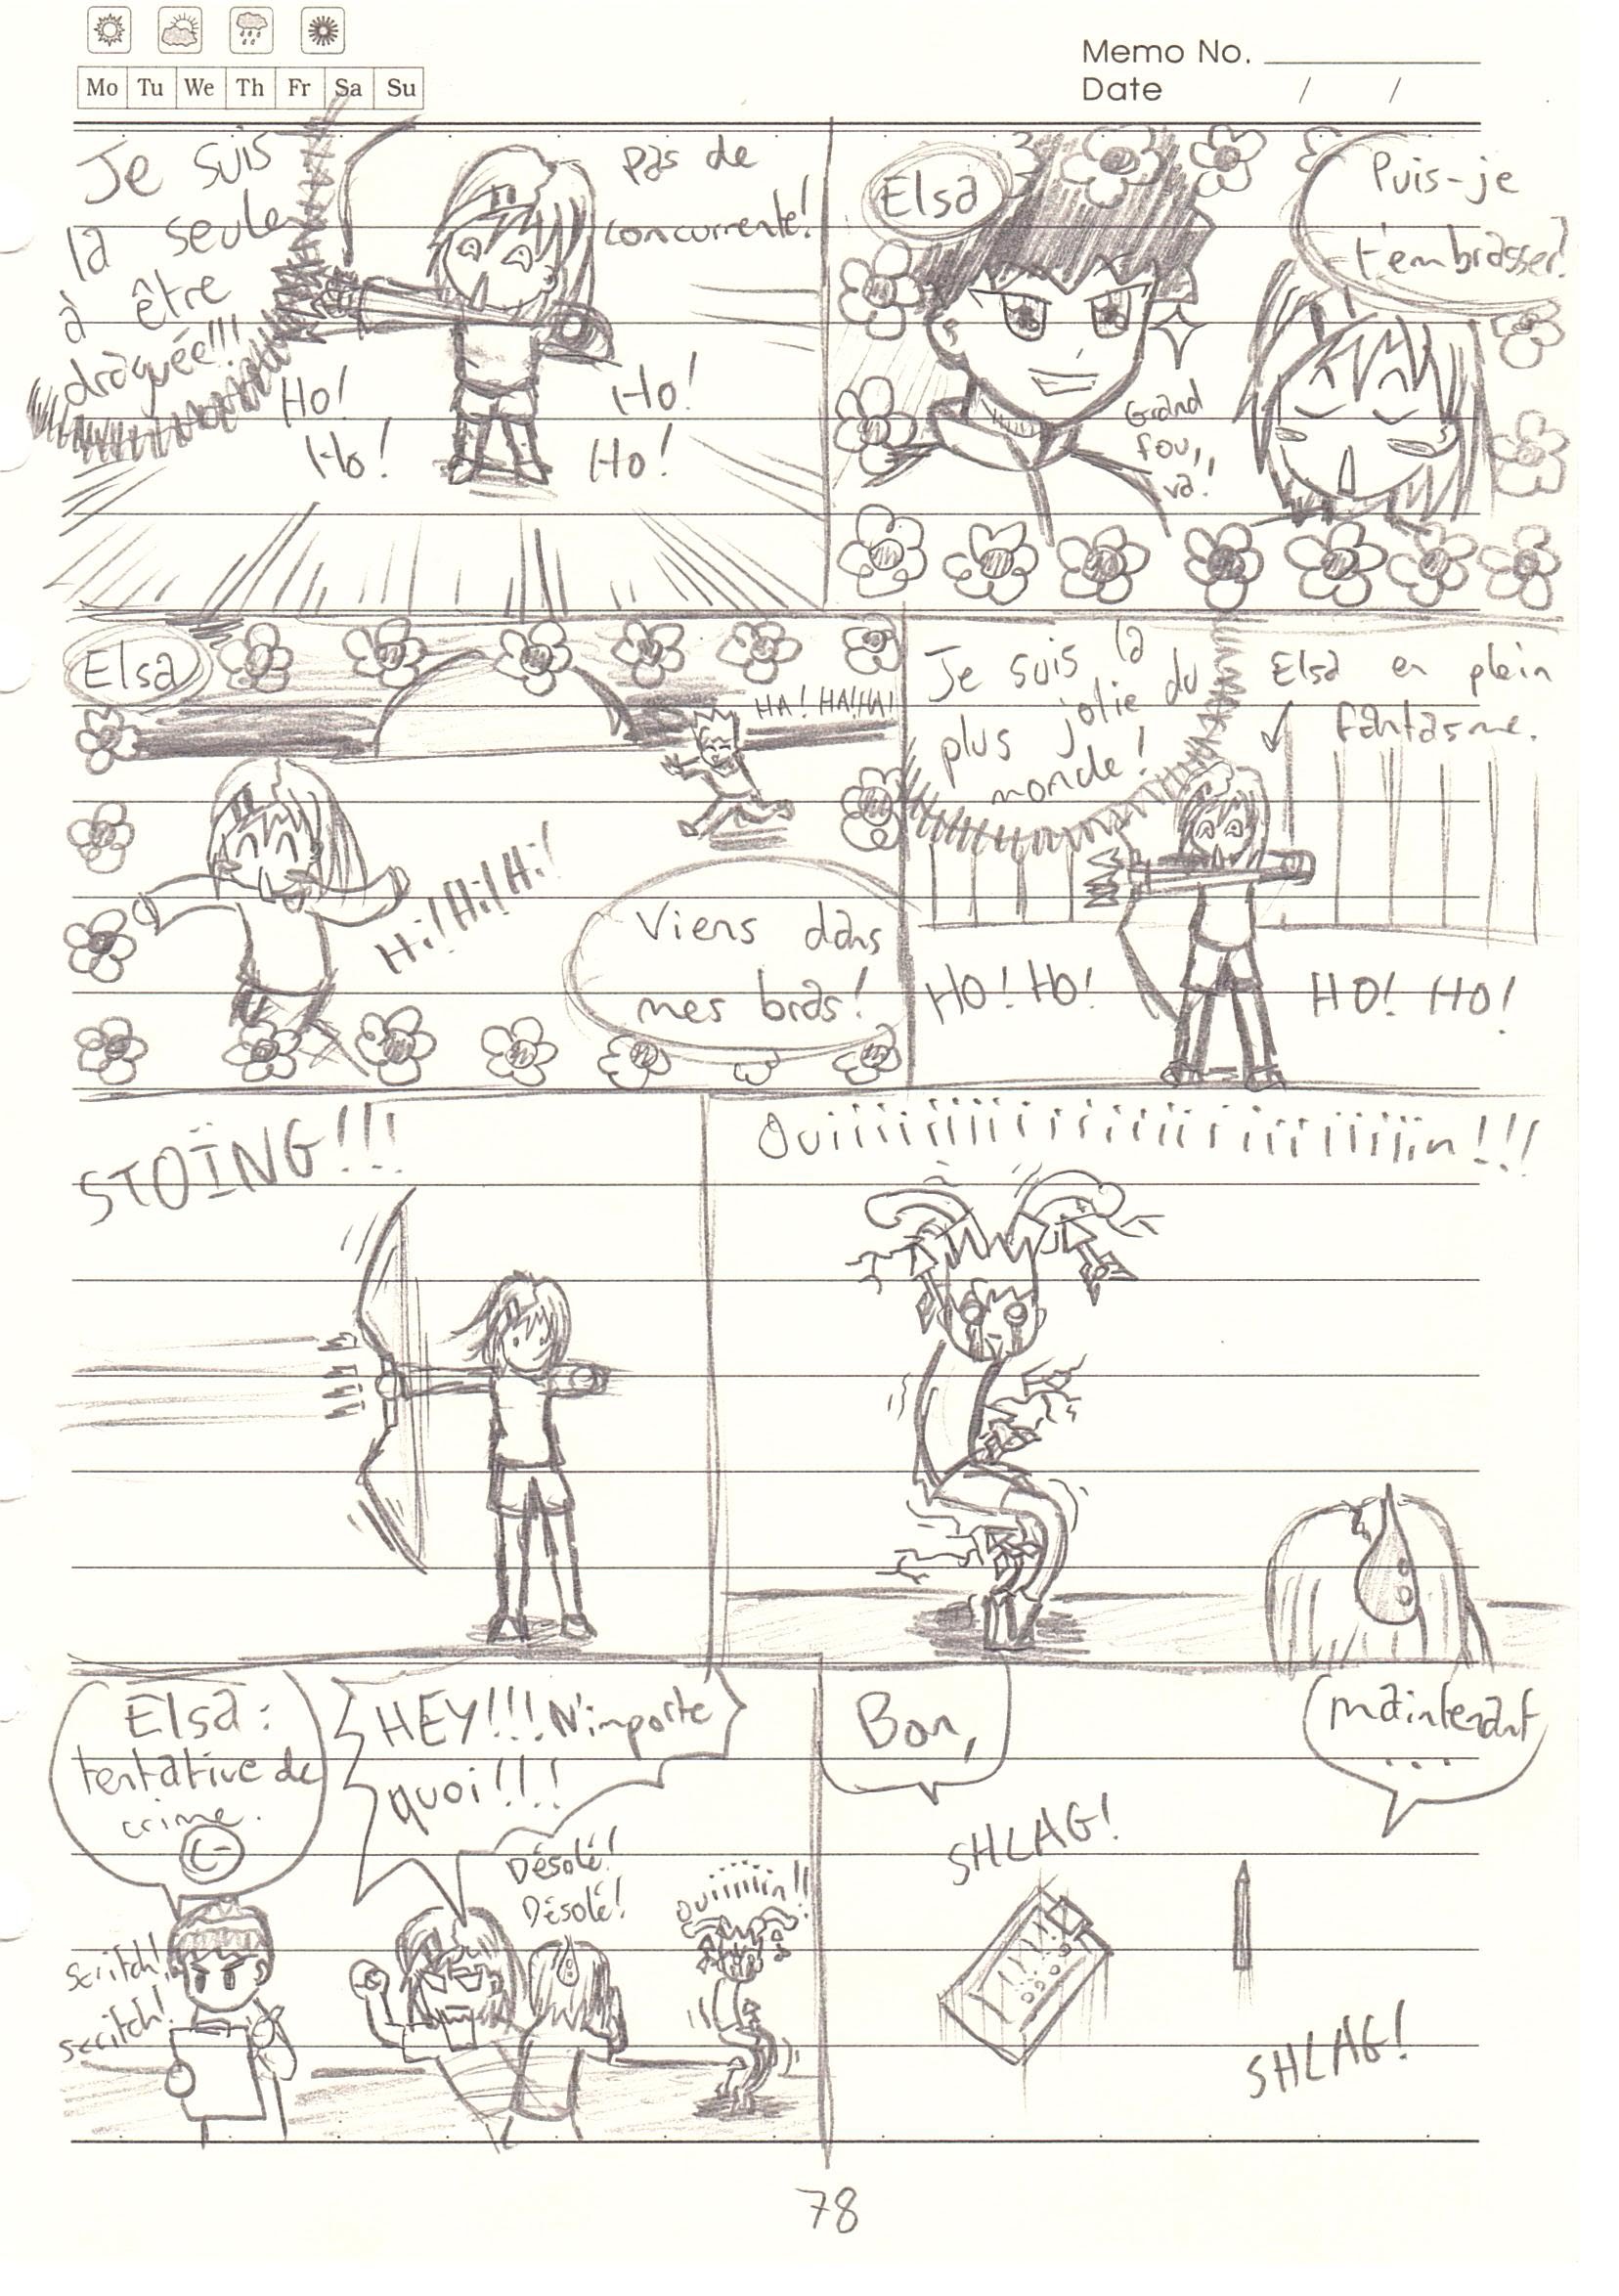 Mo Tu We Th Fr Sa Su
Memo No.
Date / /
Je suis
la seule
à être
draguée!!!
pas de
concurrente!
Ho!
Ho!
Ho!
Ho!
Elsa
Puis-je
t'embrasser?
Grand
fou,
va!
Elsa
HA! HA! HA!
Hi! Hi! Hi!
Viens dans
mes bras!
Je suis la
plus jolie du
monde!
Elsa en plein
fantasme.
HO! HO!
HO! HO!
STOÏNG!!!
Ouiiiiiiiiiiiiiiiiiiiiiiiiiiin!!!
Elsa:
tentative de
crime.
C-
HEY!!! N'importe
quoi!!!
Désolé!
Désolé!
Ouiiiiiin!!
scritch!
scritch!
Bon,
maintenant
...
SHLAG!
SHLAG!
78